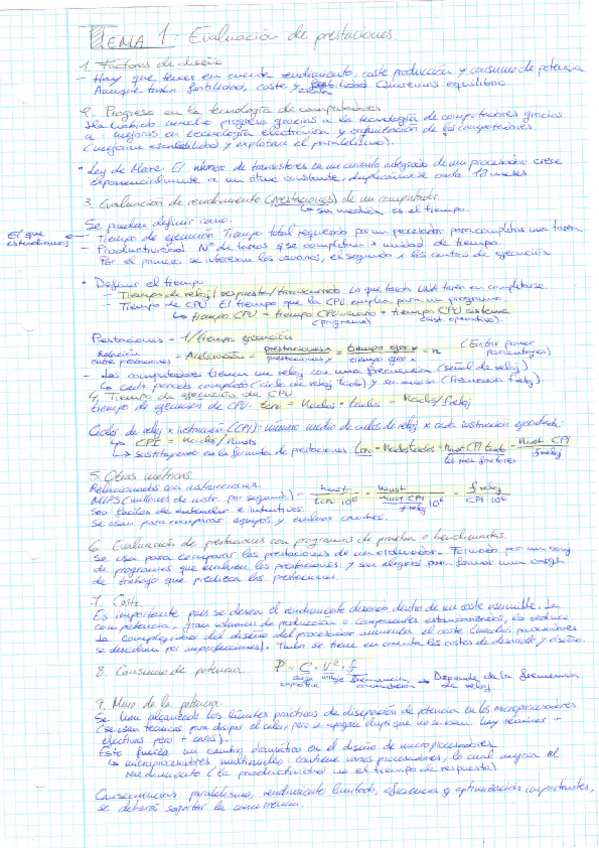 TEMA 1: Evaluación de prestaciones.
1. Factores de diseño
- Hay que tener en cuenta rendimiento, coste producción y consumo de potencia
Aunque también fiabilidad, coste y estabilidad. Conseguimos equilibrio
2. Progreso en la tecnología de computadores
Ha habido mucho progreso gracias a la tecnología de computadores gracias
a mejoras en tecnología electrónica y organización de los computadores
(mejoran escalabilidad y explotan el paralelismo).
• Ley de Moore: El número de transistores en un circuito integrado de un procesador crece
exponencialmente a un ritmo constante, duplicándose cada 18 meses
3. Evaluación de rendimiento (prestaciones) de un computador.
↳ su medida es el tiempo.
Se pueden definir como:
El que estudiamos ← - Tiempo de ejecución. Tiempo total requerido por un procesador para completar una tarea.
- Productividad. Nº de tareas que se completan x unidad de tiempo.
Por el primero se interesan los usuarios, en segundo x los centros de ejecución
• Definir el tiempo
- Tiempo de reloj/respuesta/transcurrido. Lo que tarda UNA tarea en completarse.
- Tiempo de CPU. El tiempo que la CPU emplea para un programa.
↳ tiempo CPU = tiempo CPU usuario + tiempo CPU sistema
(programa) (sist. operativo).
Prestaciones = 1/tiempo ejecución
Relación entre prestaciones = Aceleración = prestaciones x / prestaciones y = tiempo ejec y / tiempo ejec x = n (Evitar poner porcentajes)
- Los computadores tienen un reloj con una frecuencia (señal de reloj)
↳ cada periodo completo (ciclo de reloj tciclo) y su inversa (frecuencia f reloj).
4. Tiempo de ejecución de CPU
tiempo de ejecución de CPU: tcpu = Nciclos · tciclo = Nciclos / freloj
Ciclos de reloj x instrucción (CPI): número medio de ciclos de reloj x cada instrucción ejecutada:
↳ CPI = Nciclos / Ninst
↳ sustituyendo en la fórmula de prestaciones tcpu = Nciclos tciclo = Ninst CPI tciclo = Ninst CPI / freloj
los tres factores
5. Otras métricas.
Relacionadas con instrucciones.
MIPS (millones de instr. por segundo) = Ninst / tcpu 10⁶ = Ninst / (Ninst CPI / freloj) 10⁶ = freloj / CPI · 10⁶
Son fáciles de entender e intuitivos.
Se usan para comparar equipos y
6. Evaluación de prestaciones con programas de prueba o benchmarks.
Se usa para comparar las prestaciones de un ordenador. Formado por un conj
de programas que evalúen las prestaciones y son elegidos para formar una carga
de trabajo que prediga las prestaciones.
7. Coste
Es importante pues se desea el rendimiento deseado dentro de un coste asumible. La
competencia, gran volumen de producción o componentes estandarizados, lo reduce
La complejidad del diseño del procesador aumenta el coste (muchos procesadores
se descartan por imperfecciones). También se tiene en cuenta los costes de desarrollo y diseño.
8. Consumo de potencia P = C · V² · f
carga capacitiva voltaje frecuencia conmutación → Depende de la frecuencia
de reloj
9. Muro de la potencia.
Se han alcanzado los límites prácticos de disipación de potencia en los microprocesadores
(se usan técnicas para disipar el calor, pero x apagan chips que no se usan. Hay técnicas +
efectivas pero + caras).
Esto fuerza un cambio dramático en el diseño de microprocesadores
↳ microprocesadores multinúcleo: contiene varios procesadores, lo cual mejora el
rendimiento (la productividad no el tiempo de respuesta)
Consecuencias: paralelismo, rendimiento limitado, eficiencia y optimización importantes,
se deberá soportar la concurrencia.